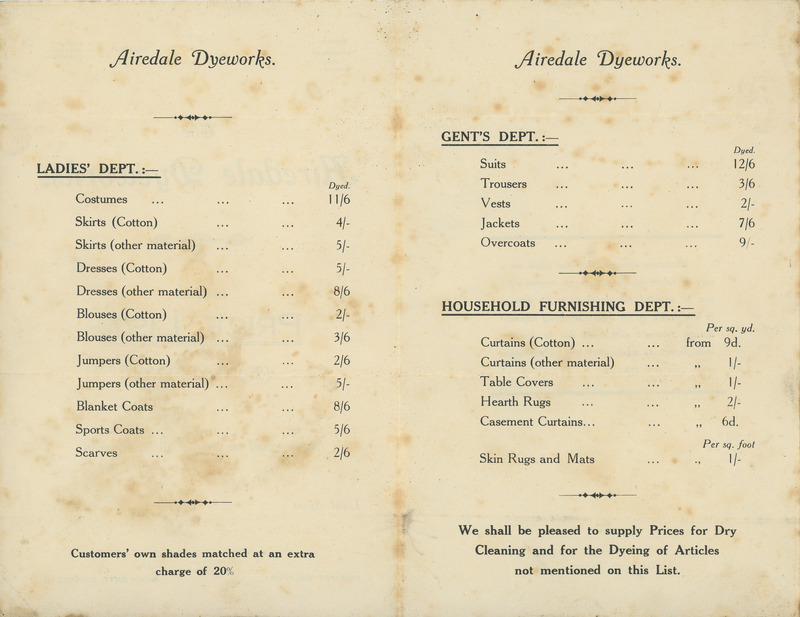 Airedale Dyeworks.
LADIES' DEPT. :—
Dyed.
Costumes ... ... ... 11/6
Skirts (Cotton) ... ... 4/-
Skirts (other material) ... ... 5/-
Dresses (Cotton) ... ... 5/-
Dresses (other material) ... ... 8/6
Blouses (Cotton) ... ... 2/-
Blouses (other material) ... ... 3/6
Jumpers (Cotton) ... ... 2/6
Jumpers (other material) ... ... 5/-
Blanket Coats ... ... 8/6
Sports Coats ... ... ... 5/6
Scarves ... ... ... 2/6
Customers' own shades matched at an extra
charge of 20%
Airedale Dyeworks.
GENT'S DEPT. :—
Dyed.
Suits ... ... ... 12/6
Trousers ... ... ... 3/6
Vests ... ... ... 2/-
Jackets ... ... ... 7/6
Overcoats ... ... ... 9/-
HOUSEHOLD FURNISHING DEPT. :—
Per sq. yd.
Curtains (Cotton) ... ... from 9d.
Curtains (other material) ... „ 1/-
Table Covers ... ... „ 1/-
Hearth Rugs ... ... „ 2/-
Casement Curtains... ... „ 6d.
Per sq. foot
Skin Rugs and Mats ... „ 1/-
We shall be pleased to supply Prices for Dry
Cleaning and for the Dyeing of Articles
not mentioned on this List.